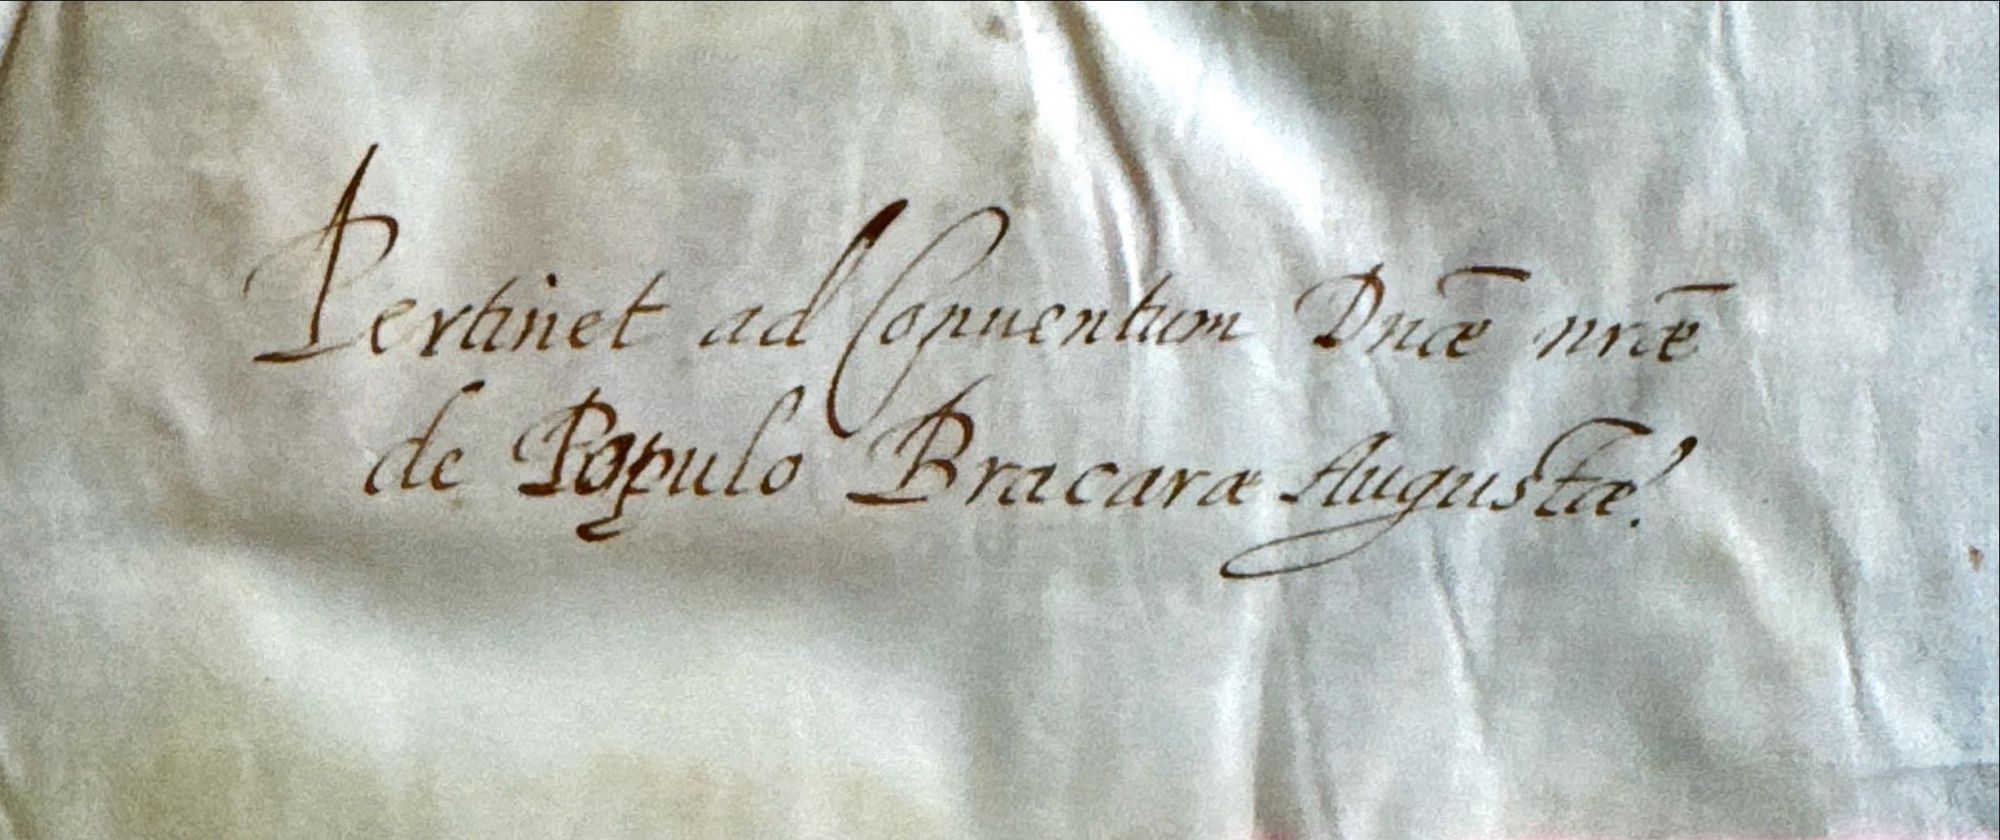 Pertinet ad Conuentum Dnǣ nrǣ
de Populo Bracaræ Augustæ.